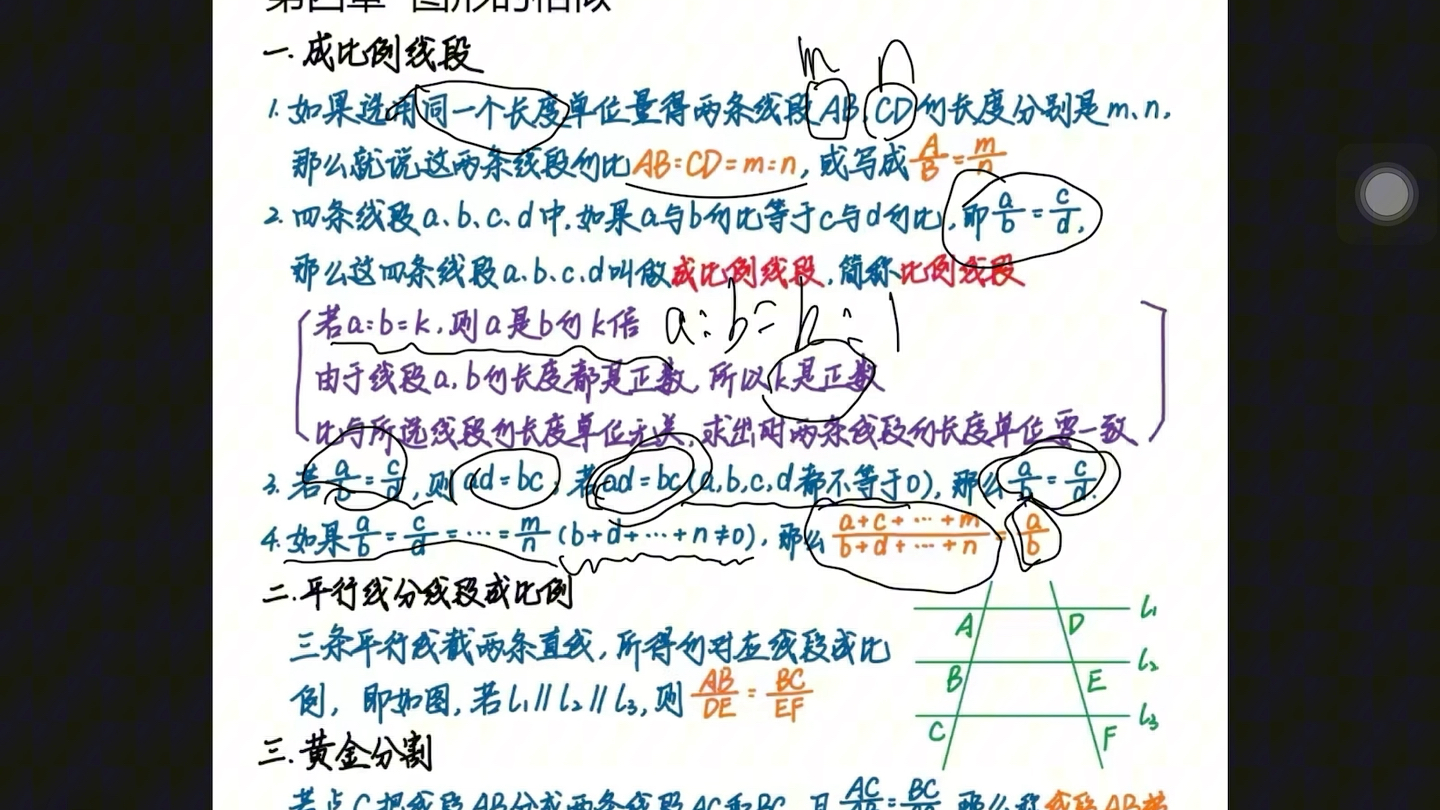 第四章 图形的相似
一. 成比例线段
m n
1. 如果选用同一个长度单位量得两条线段AB,CD的长度分别是m、n,
那么就说这两条线段的比AB:CD=m:n, 或写成A/B=m/n
2. 四条线段a、b、c、d中,如果a与b的比等于c与d的比,即a/b=c/d,
那么这四条线段a、b、c、d叫做成比例线段,简称比例线段
若a:b=k,则a是b的k倍 a:b=k:1
由于线段a、b的长度都是正数,所以k是正数
比与所选线段的长度单位无关,求出时两条线段的长度单位要一致
3. 若a/b=c/d,则ad=bc;若ad=bc(a,b,c,d都不等于0),那么a/b=c/d.
4. 如果a/b=c/d=…=m/n(b+d+…+n≠0),那么a+c+…+m/b+d+…+n=a/b
二. 平行线分线段成比例
三条平行线截两条直线,所得的对应线段成比
例, 即如图,若l₁∥l₂∥l₃,则AB/DE=BC/EF
A D l₁
B E l₂
C F l₃
三. 黄金分割
若点C把线段AB分成两条线段AC和BC,且